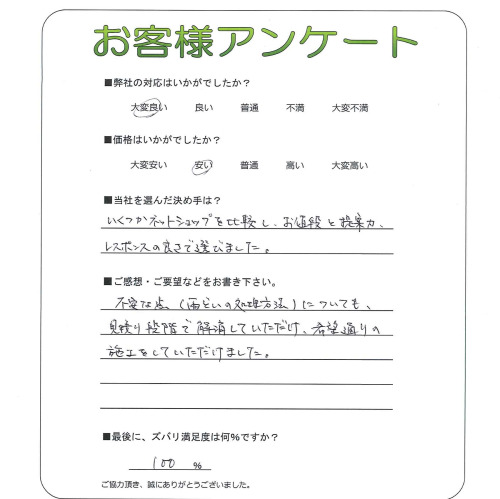 お客様アンケート
■弊社の対応はいかがでしたか？
大変良い 良い 普通 不満 大変不満
■価格はいかがでしたか？
大変安い 安い 普通 高い 大変高い
■当社を選んだ決め手は？
いくつかネットショップを比較し、お値段と提案力、
レスポンスの良さで選びました。
■ご感想・ご要望などをお書き下さい。
不安な点（雨といの処理方法）についても、
見積り段階で解消していただけ、希望通りの
施工をしていただけました。
■最後に、ズバリ満足度は何%ですか？
100 %
ご協力頂き、誠にありがとうございました。